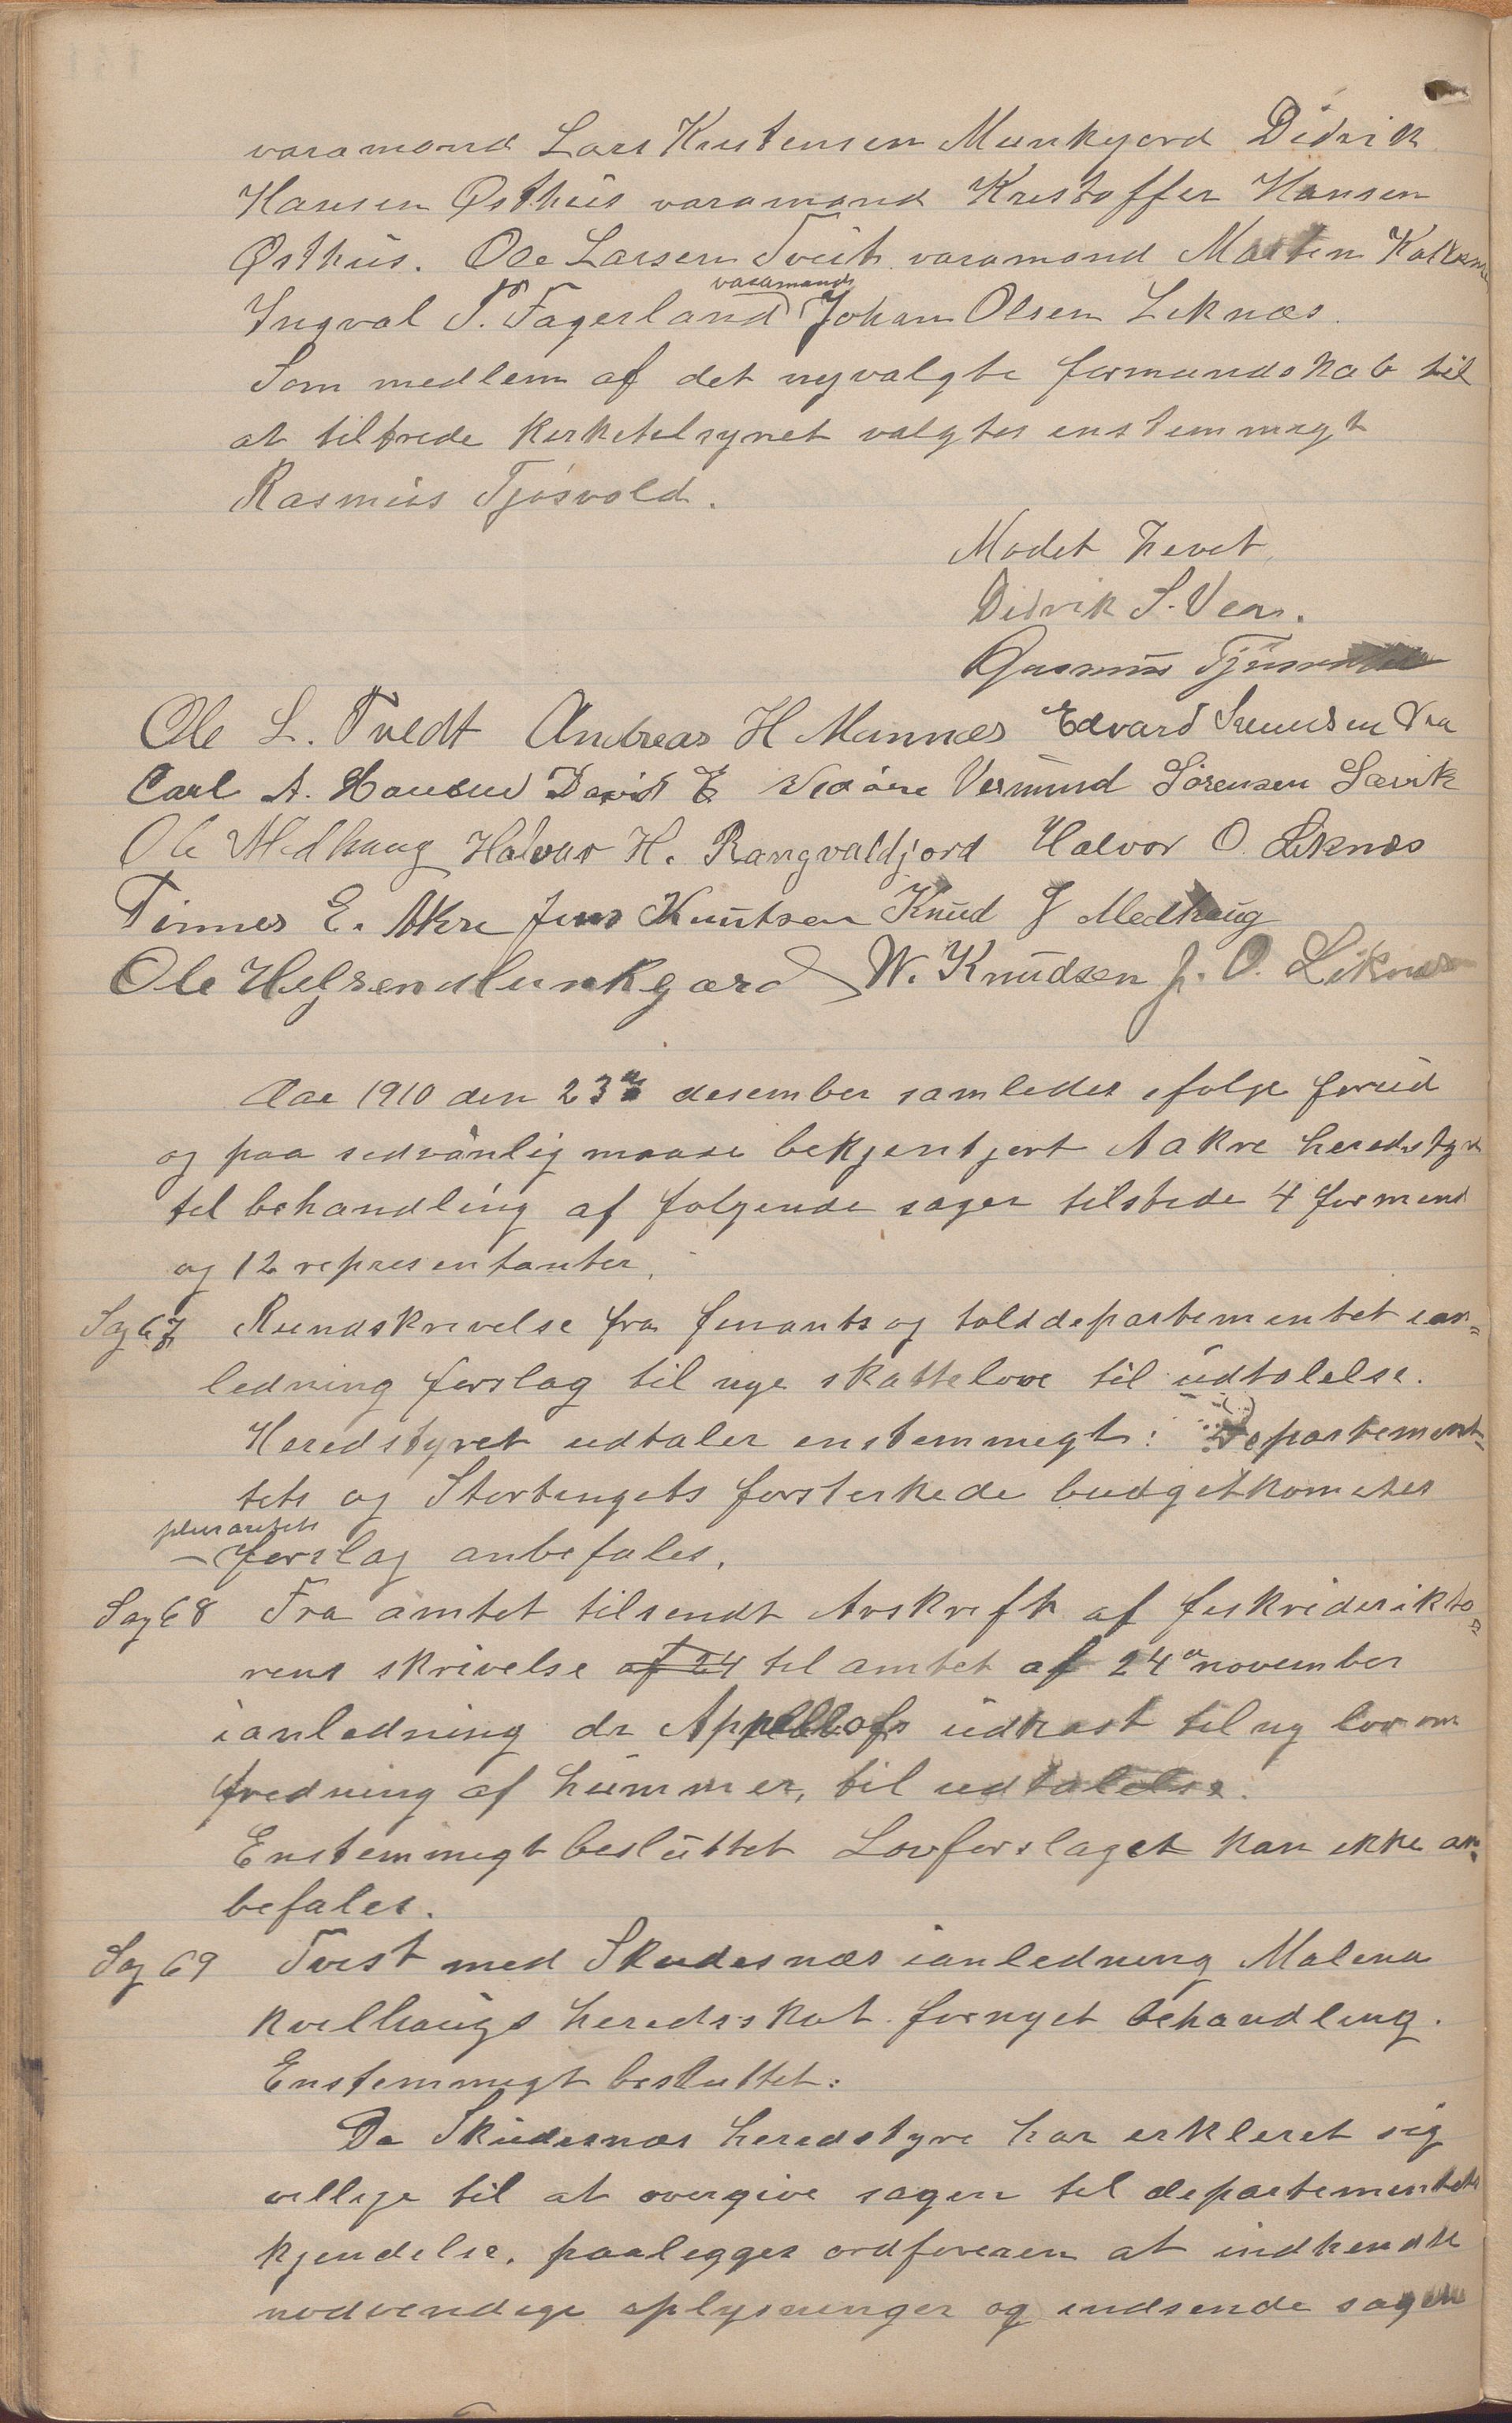 varamand Lars Kristensen Munkjord Didrik
Hansen Østhus varamand Kristoffer Hansen
Østhus. Ole Larsen Tveit varamand Martin
varamand
Ingval T. Fagerland Johan Olsen Liknæs.
Som medlem af det nyvalgte formandskab til
at tiltræde kirketilsynet valgtes enstemmigt
Rasmus Tjøsvold.
Mødet hevet
Didrik S. Vea.
Rasmus
Ole L. Tvedt Andreas H Mannes Edvard Vea
Carl A. Hansen David E Vermund Sørensen Sævik
Ole Medhaug Halvar H. Rangvaldjord Halvor O. Liknæs
Tønnes E. Åkre Jens Knutsen Knud J Medhaug
Ole Helgesen Munkejord W. Knudsen J. O. Liknæs
Aar 1910 den 23de desember samledes ifølge forud
og paa sedvanlig maade bekjentjort Aakre heredstyre
til behandling af følgende sager tilstede 4 formend
og 12 representanter.
Sag 67 Rundskrivelse fra finants og tolddepartementet ian=
ledning forslag til nye skattelove til udtalelse.
Heredstyret udtaler enstemmigt: Departement-
tets og Stortingets forsterkede budgetkomites
pluralitets
forslag anbefales.
Sag 68 Fra amtet tilsendt Avskrift af fiskeridirikto=
rens skrivelse af 24 til amtet af 24de november
ianledning dr Appelløfs udkast til ny lov om
fredning af hummer, til udtalelse.
Enstemmigt besluttet Lovforslaget kan ikke an-
befales.
Sag 69 Tvist med Skudesnæs ianledning Malena
Kvilhaugs heredsskat fornyet behandling.
Enstemmigt besluttet:
Da Skudesnæs heredstyre har erkleret sig
villige til at overgive sagen til departementets
kjendelse, paalegges ordføreren at indhendte
nødvendige oplysninger og indsende sagen